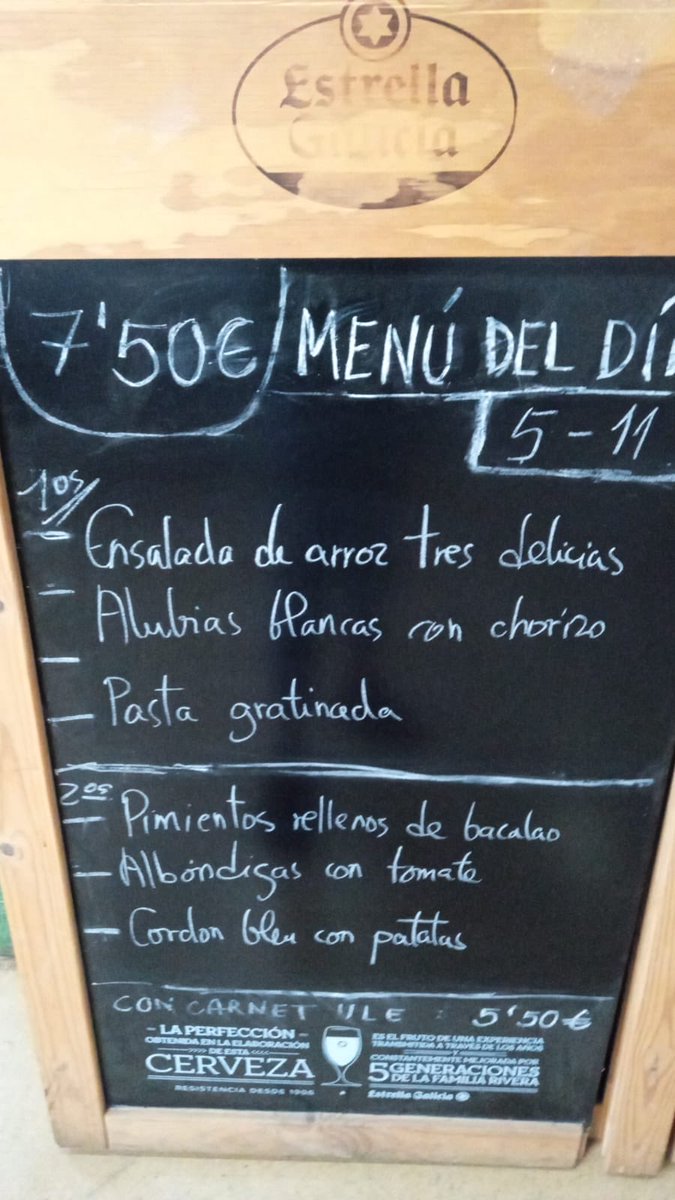 Estrella
Galicia
7'50€ MENÚ DEL DÍ
5-11
1os/
- Ensalada de arroz tres delicias
- Alubias blancas con chorizo
- Pasta gratinada
2os
- Pimientos rellenos de bacalao
- Albóndigas con tomate
- Cordon bleu con patatas
CON CARNET ULE : 5'50€
- LA PERFECCIÓN -
OBTENIDA EN LA ELABORACIÓN
DE ESTA
CERVEZA
RESISTENCIA DESDE 1906
ES EL FRUTO DE UNA EXPERIENCIA
TRANSMITIDA A TRAVÉS DE LOS AÑOS
Y
CONSTANTEMENTE MEJORADA POR
5 GENERACIONES
DE LA FAMILIA RIVERA
Estrella Galicia